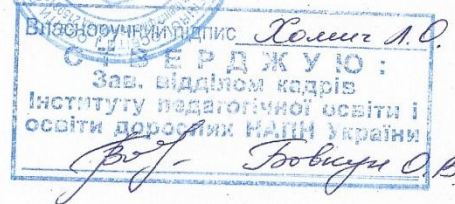 Власноручний підпис Хомич Л.О.
СТВЕРДЖУЮ:
Зав. відділом кадрів
Інституту педагогічної освіти і
освіти дорослих НАПН України
Бовкун О.В